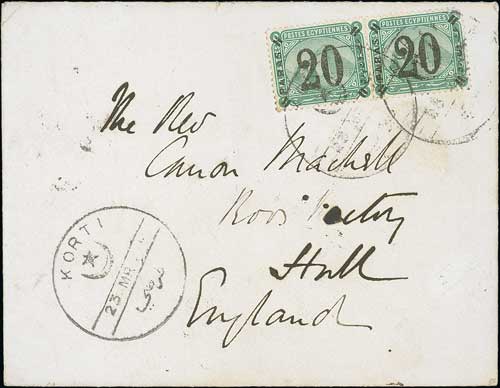 POSTES EGYPTIENNES POSTES EGYPTIENNES
20 20
The Rev
Canon Machell
Roos Rectory
Hull
England
KORTI
23 MR